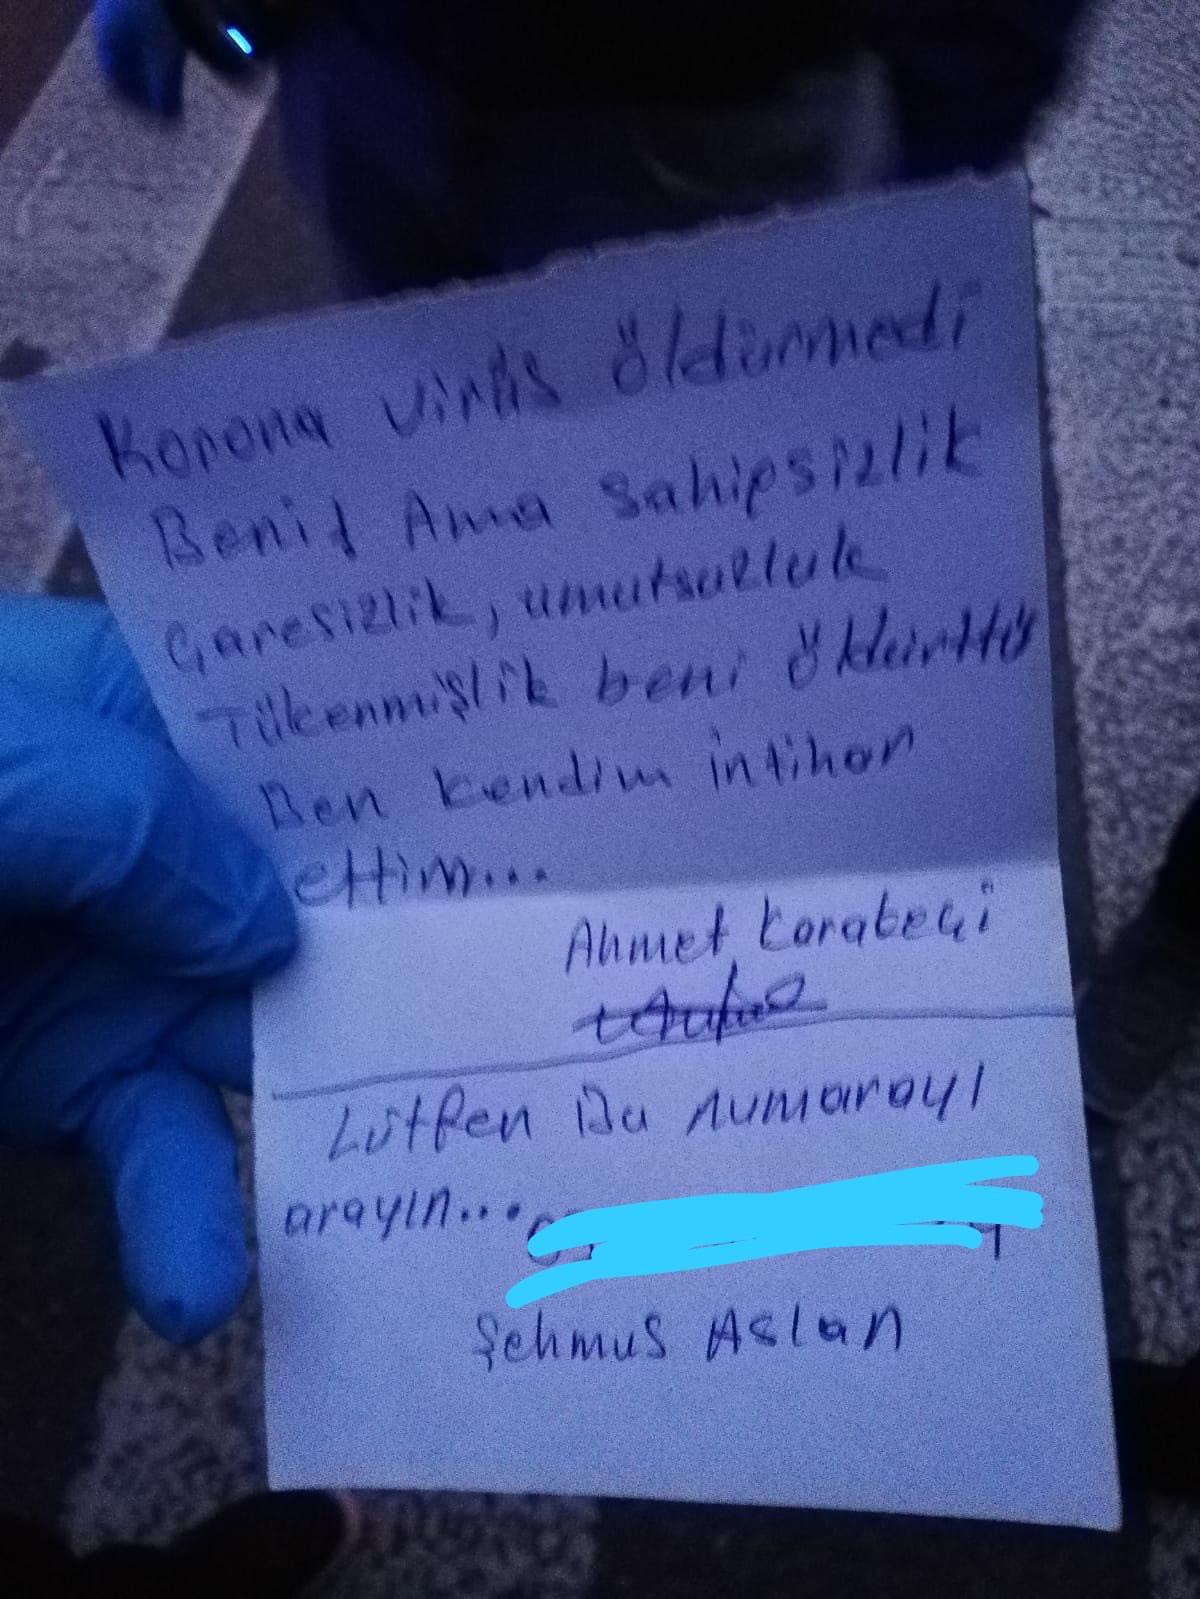 Korona virüs öldürmedi
Beni Ama Sahipsizlik
Çaresizlik, umutsuzluk
Tükenmişlik beni öldürttü
Ben kendim intihar
ettim...
Ahmet Karabeçi
Lütfen Bu numarayı
arayın...
Şehmus Aslan